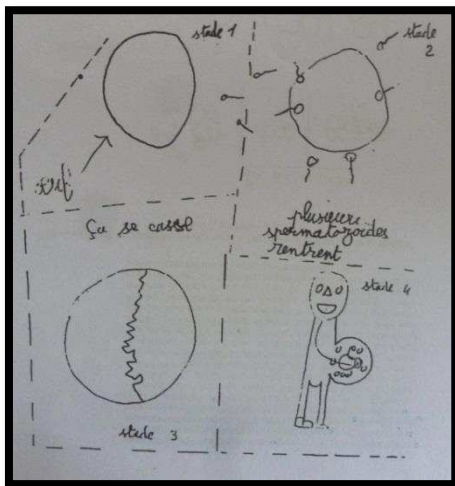 stade 1
stade
2
Ça se casse
plusieurs
spermatozoïdes
rentrent
stade 3
stade 4